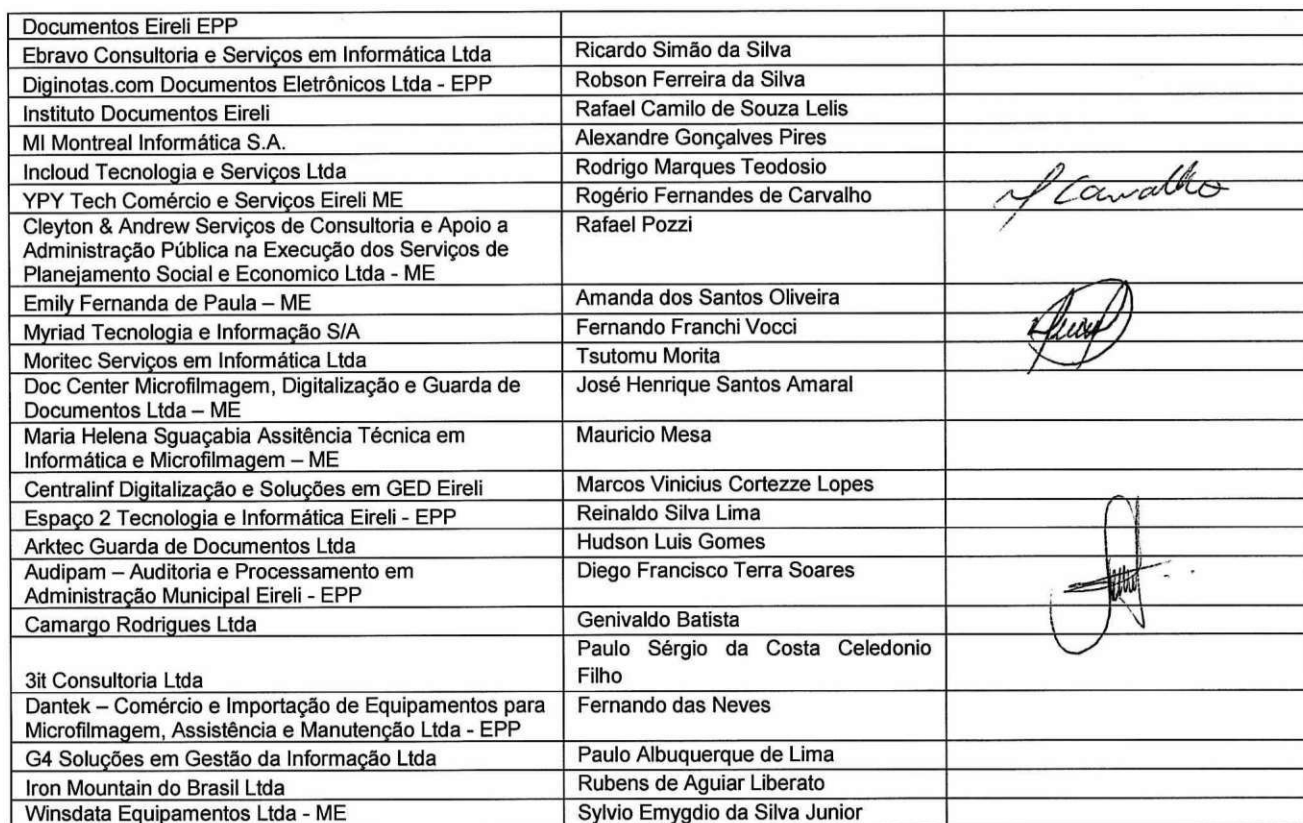 Documentos Eireli EPP
Ebravo Consultoria e Serviços em Informática Ltda Ricardo Simão da Silva
Diginotas.com Documentos Eletrônicos Ltda - EPP Robson Ferreira da Silva
Instituto Documentos Eireli Rafael Camilo de Souza Lelis
MI Montreal Informática S.A. Alexandre Gonçalves Pires
Incloud Tecnologia e Serviços Ltda Rodrigo Marques Teodosio
YPY Tech Comércio e Serviços Eireli ME Rogério Fernandes de Carvalho Carvalho
Cleyton & Andrew Serviços de Consultoria e Apoio a Rafael Pozzi
Administração Pública na Execução dos Serviços de
Planejamento Social e Economico Ltda - ME
Emily Fernanda de Paula – ME Amanda dos Santos Oliveira
Myriad Tecnologia e Informação S/A Fernando Franchi Vocci
Moritec Serviços em Informática Ltda Tsutomu Morita
Doc Center Microfilmagem, Digitalização e Guarda de José Henrique Santos Amaral
Documentos Ltda – ME
Maria Helena Sguaçabia Assitência Técnica em Mauricio Mesa
Informática e Microfilmagem – ME
Centralinf Digitalização e Soluções em GED Eireli Marcos Vinicius Cortezze Lopes
Espaço 2 Tecnologia e Informática Eireli - EPP Reinaldo Silva Lima
Arktec Guarda de Documentos Ltda Hudson Luis Gomes
Audipam – Auditoria e Processamento em Diego Francisco Terra Soares
Administração Municipal Eireli - EPP
Camargo Rodrigues Ltda Genivaldo Batista
Paulo Sérgio da Costa Celedonio
3it Consultoria Ltda Filho
Dantek – Comércio e Importação de Equipamentos para Fernando das Neves
Microfilmagem, Assistência e Manutenção Ltda - EPP
G4 Soluções em Gestão da Informação Ltda Paulo Albuquerque de Lima
Iron Mountain do Brasil Ltda Rubens de Aguiar Liberato
Winsdata Equipamentos Ltda - ME Sylvio Emygdio da Silva Junior